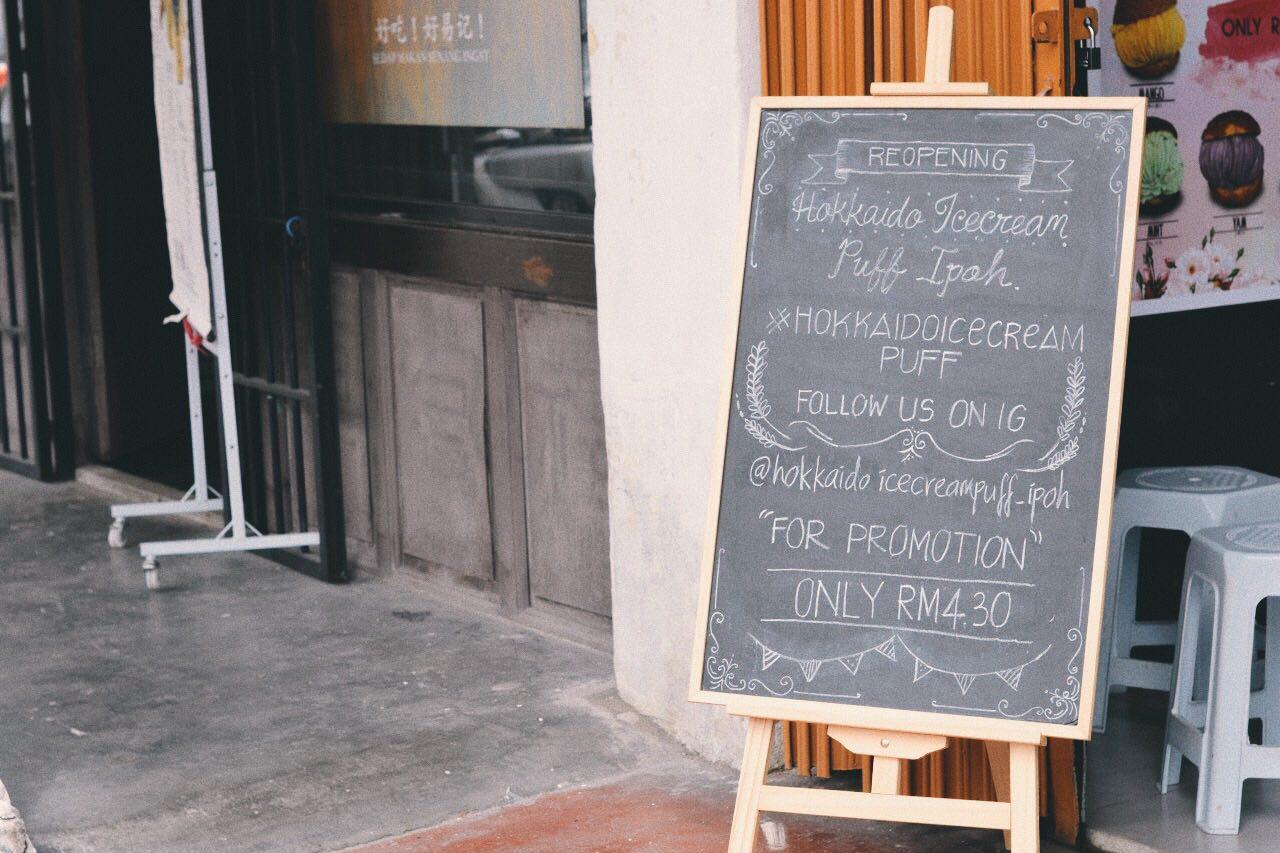 好吃！好易记！
SEDAP MAKAN SENANG INGAT
REOPENING
Hokkaido Icecream
Puff Ipoh.
#HOKKAIDOICECREAM
PUFF
FOLLOW US ON IG
@hokkaidoicecreampuff_ipoh
"FOR PROMOTION"
ONLY RM4.30
ONLY R
MANGO
YAM